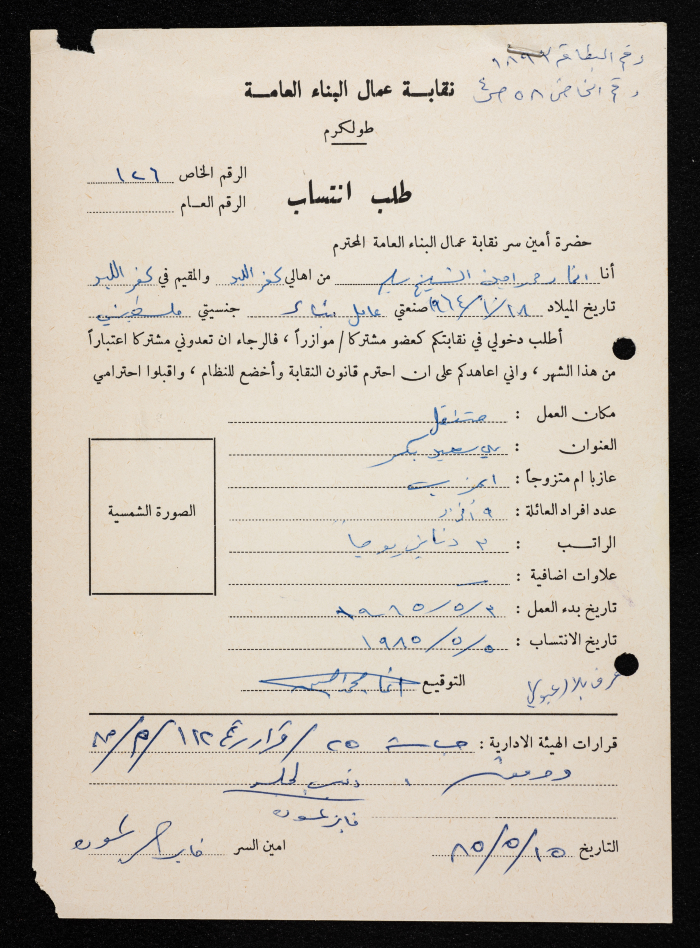 رقم البطاقة
رقم الخاص ٥٨ ص ٤
نقابة عمال البناء العامة
طولكرم
الرقم الخاص ١٢٦
الرقم العام
طلب انتساب
حضرة أمين سر نقابة عمال البناء العامة المحترم
أنا الشيخ سليم من اهالي كفر اللبد والمقيم في كفر اللبد
تاريخ الميلاد ١٩٦٤/١/١٨ صنعتي عامل بناء جنسيتي فلسطيني
أطلب دخولي في نقابتكم كعضو مشتركا / موازراً ، فالرجاء ان تعدوني مشتركا اعتباراً
من هذا الشهر ، واني اعاهدكم على ان احترم قانون النقابة وأخضع للنظام ، واقبلوا احترامي
مكان العمل : متنقل
العنوان : سعيد بكر
عازبا ام متزوجاً : اعزب
عدد افراد العائلة : ٩ أفراد
الراتب : ٣ دنانير يوميا
علاوات اضافية : —
تاريخ بدء العمل : ١٩٨٥/٥/٣
تاريخ الانتساب : ١٩٨٥/٥/٥
الصورة الشمسية
التوقيع
قرارات الهيئة الادارية : جلسة ٢٥ / قرار رقم ١١٢
التاريخ ٨٥/٥/١٥
امين السر